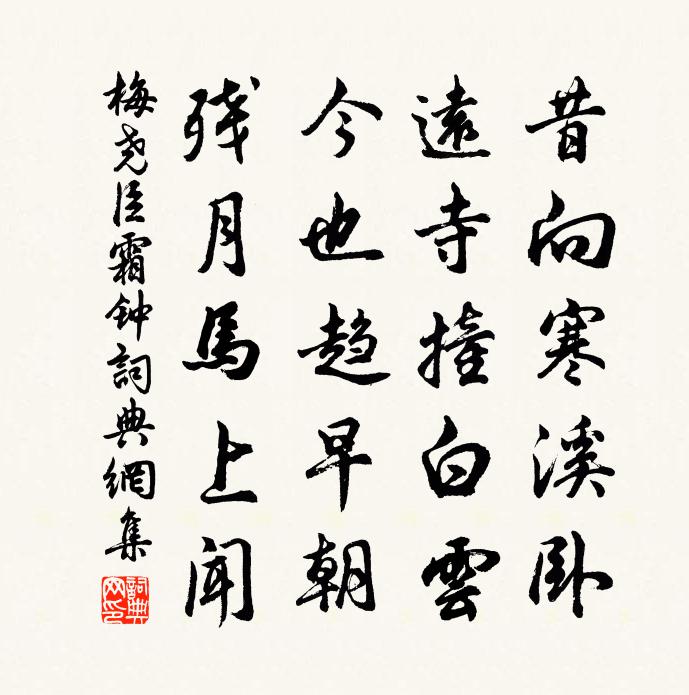 昔向寒溪卧
遠寺撞白雲
今也趋早朝
残月馬上聞
梅尧臣霜钟詞典網集
詞典網印